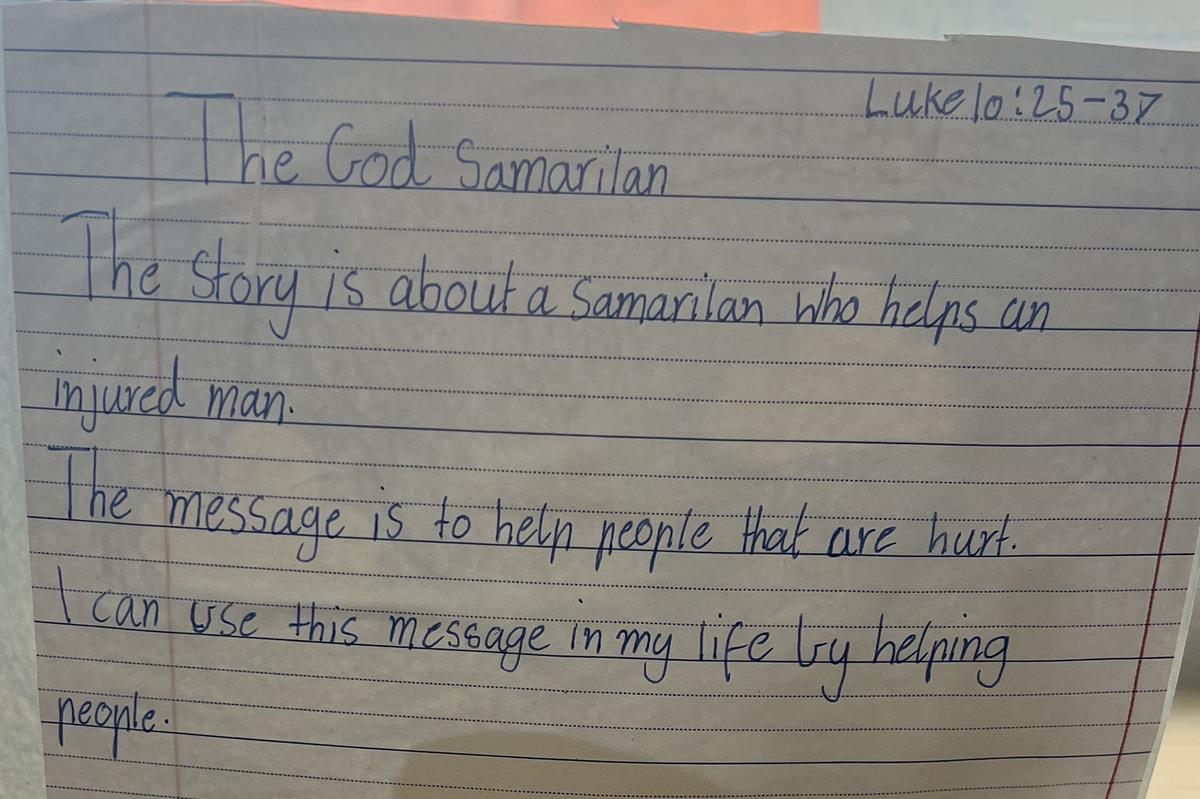 Luke 10:25-37
The God Samarilan
The story is about a Samarilan who helps an
injured man.
The message is to help people that are hurt.
I can use this message in my life by helping
people.